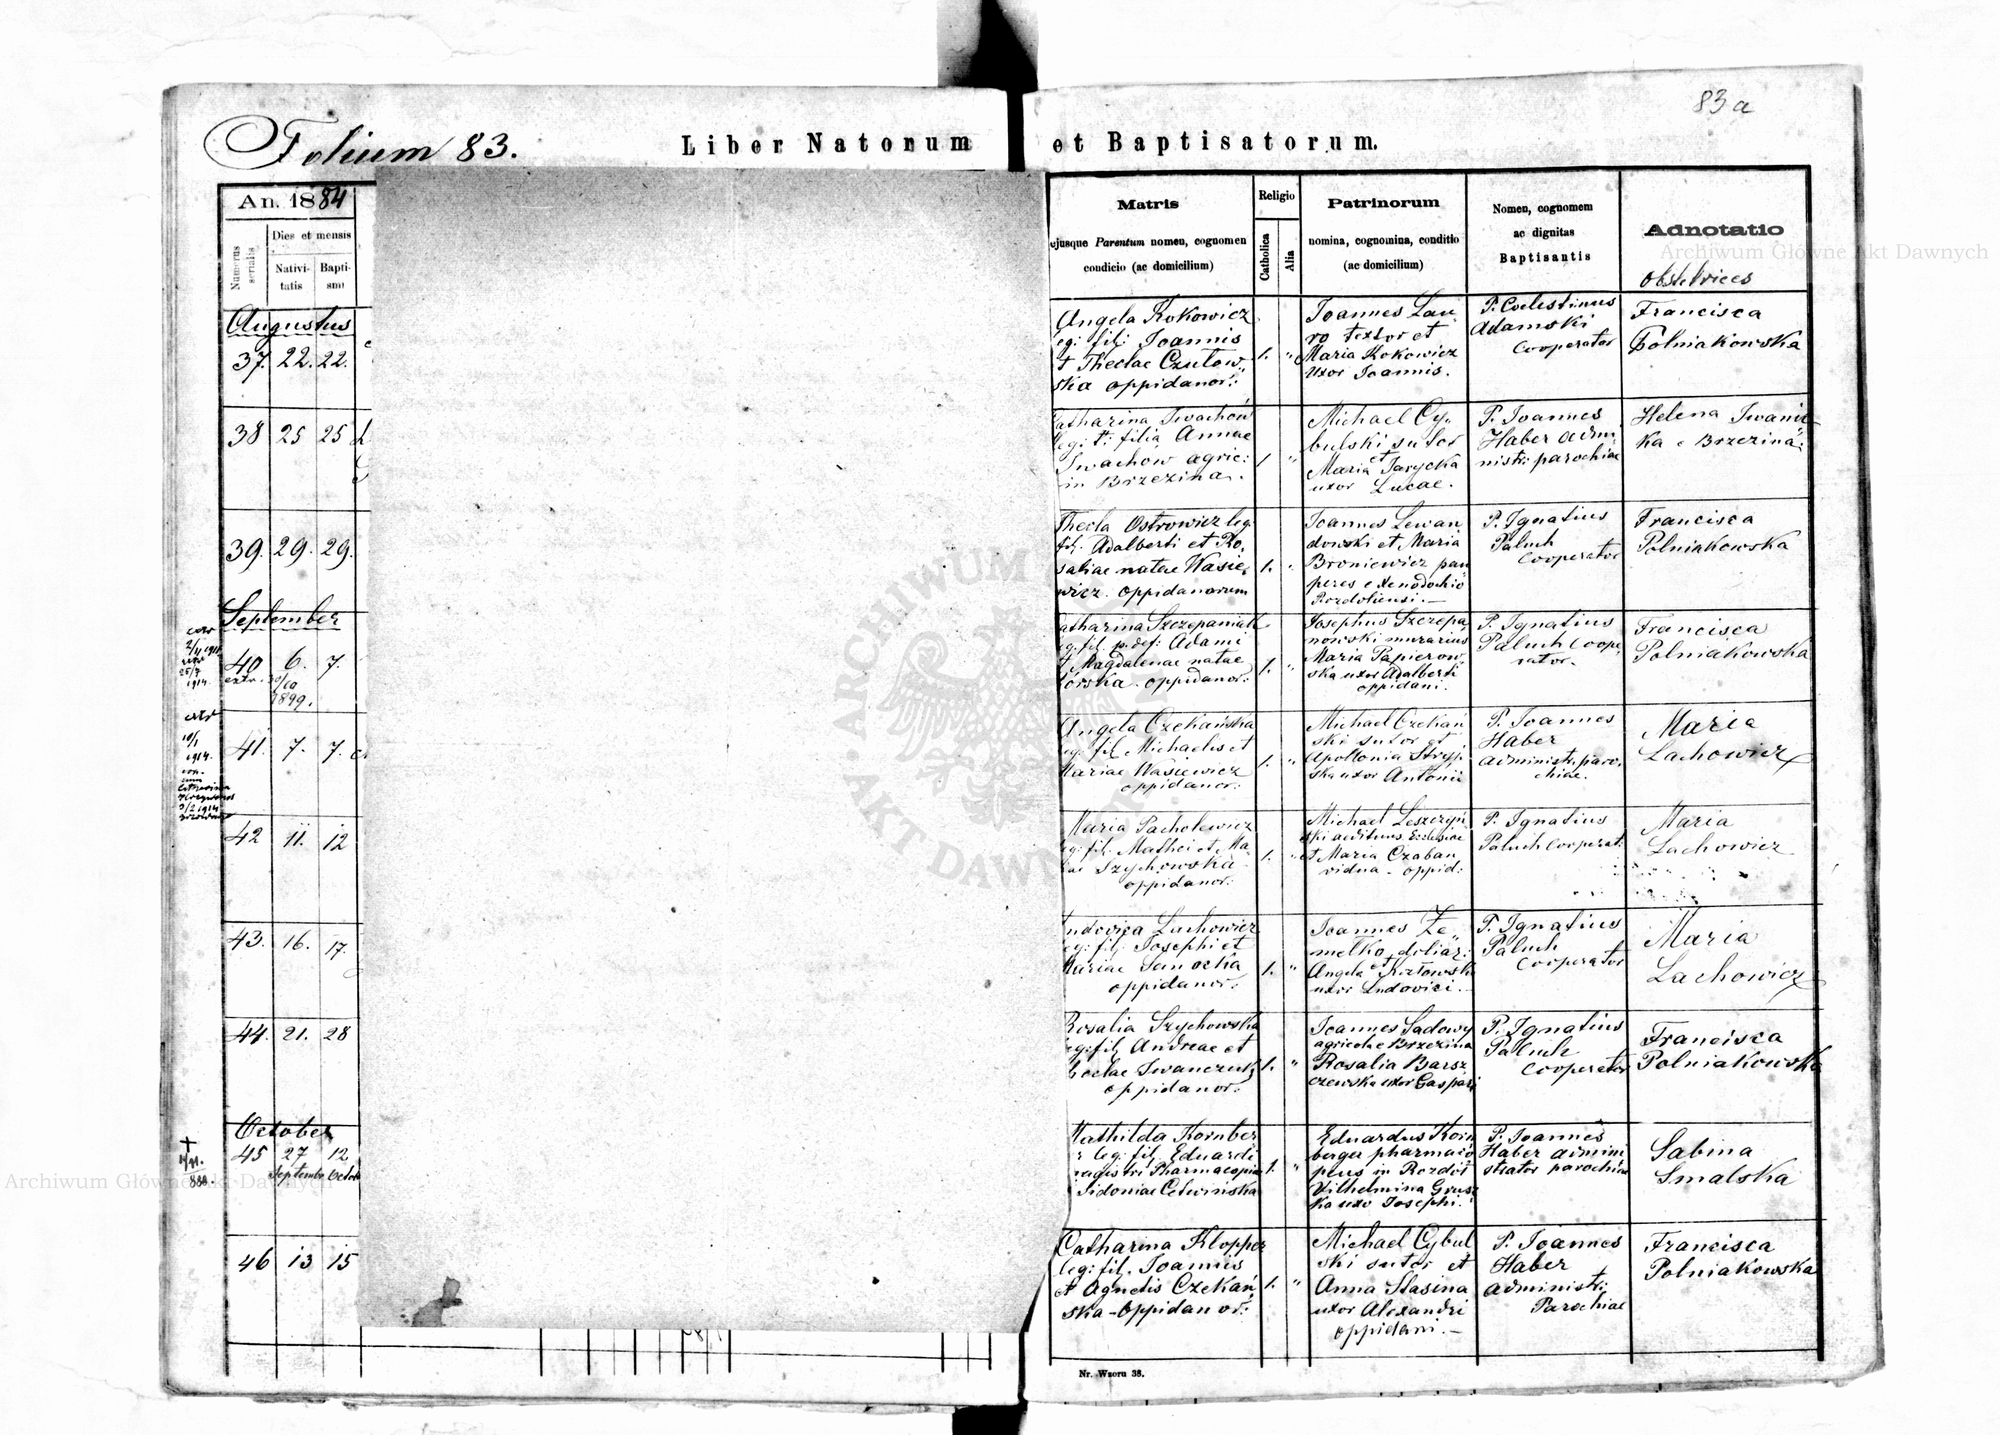 83a
Folium 83.
Liber Natorum et Baptisatorum.
An. 1884
Numerus serialis
Dies et mensis
Nativi-
tatis
Bapti-
smi
Matris
ejusque Parentum nomen, cognomen
condicio (ac domicilium)
Religio
Catholica
Alia
Patrinorum
nomina, cognomina, conditio
(ac domicilium)
Nomen, cognomem
ac dignitas
Baptisantis
Adnotatio
obstetrices
Augustus
37. 22. 22.
Angela Kokowicz
leg: fil: Joannis
et Theclae Czutow-
ska oppidanor:
1. "
Joannes Lau-
ro textor et
Maria Kokowicz
uxor Joannis.
P. Coelestinus
Adamski
Cooperator
Francisca
Polniakowska
38 25 25
Catharina Iwachow
leg: t: filia Annae
Iwachow agric:
in Brzezina.
1 "
Michael Cy-
bulski sutor
et
Maria Jarycka
uxor Lucae.
P. Joannes
Haber admi
nistr: parochiae
Helena Iwanic
ka e Brzezina.
39. 29. 29.
Thecla Ostrowicz leg.
fil. Adalberti et Ro-
saliae natae Wasie-
wicz. oppidanorum
1. "
Joannes Lewan
dowski et Maria
Broniewicz pau
peres e Xenodochio
Rozdoliensi.—
P. Ignatius
Paluch
Cooperator
Francisca
Polniakowska
September
40 6. 7.
extr. 30/10
1899.
Catharina Szczepaniak
leg. fil. p. def: Adami
et Magdalenae natae
Górska. oppidanor:
1. "
Josephus Szczepa
nowski murarius
Maria Papierow
ska uxor Adalberti
oppidani.
P. Ignatius
Paluch Coope
rator.
Francisca
Polniakowska
41. 7. 7.
Angela Czekańska
leg. fil. Michaelis et
Mariae Wasiewicz
oppidanor:
1. "
Michael Czekań
ski sutor et
Apollonia Stryj-
ska uxor Antonii
P. Joannes
Haber
administr. paro-
chiae.
Maria
Lachowicz
42 11. 12
Maria Pacholewicz
leg: fil. Mathei et Ma-
riae Szychowska
oppidanor:
1. "
Michael Leszczyń
ski aedituus Ecclesiae
et Maria Czaban
vidua - oppid:
P. Ignatius
Paluch Cooperat.
Maria
Lachowicz
43. 16. 17.
Ludovica Lachowicz
leg: fil: Josephi et
Mariae Sanocka
oppidanor:
1. "
Joannes Ze-
melko doliar:
et
Angela Kozłowska
uxor Ludovici.
P. Ignatius
Paluch
Cooperator
Maria
Lachowicz
44. 21. 28
Rosalia Szychowska
leg: fil. Andreae et
Theclae Iwanczuk
oppidanor:
1. "
Joannes Sadowy
agricola e Brzezina
Rosalia Barsz
czewska uxor Gaspari
P. Ignatius
Paluch
Cooperator
Francisca
Polniakowska
October
45 27 12
Septembr Octobr
Mathilda Kornber
r leg: fil. Eduardi
magistri Pharmacopiae
Sidoniae Celwińska
1. "
Eduardus Korn
berger pharmaco
peus in Rozdół
Vilhelmina Grusz
ka uxo Josephi.
P. Joannes
Haber admini
strator parochiae
Sabina
Smalska
46 13 15
Catharina Klopper
leg: fil. Joannis
et Agnetis Czekań
ska - oppidanor:
1. "
Michael Cybul
ski sutor et
Anna Stasina
uxor Alexandri
oppidani.—
P. Joannes
Haber
administr:
Parochiae
Francisca
Polniakowska
Nr. Wzoru 38.
ARCHIWUM
AKT DAWNYCH
Archiwum Główne Akt Dawnych
Archiwum Główne Akt Dawnych